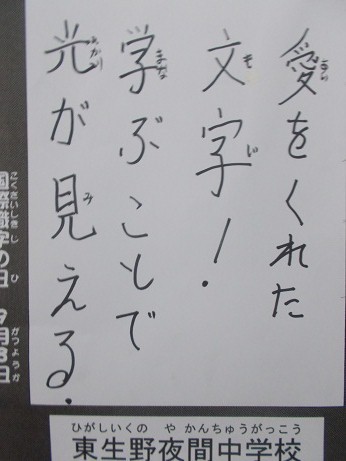 愛をくれた
文字!
学ぶことで
光が見える.
国際識字の日 9月8日
こくさいしきじ ひ がつようか
ひがしいくの や かんちゅうがっこう
東生野夜間中学校